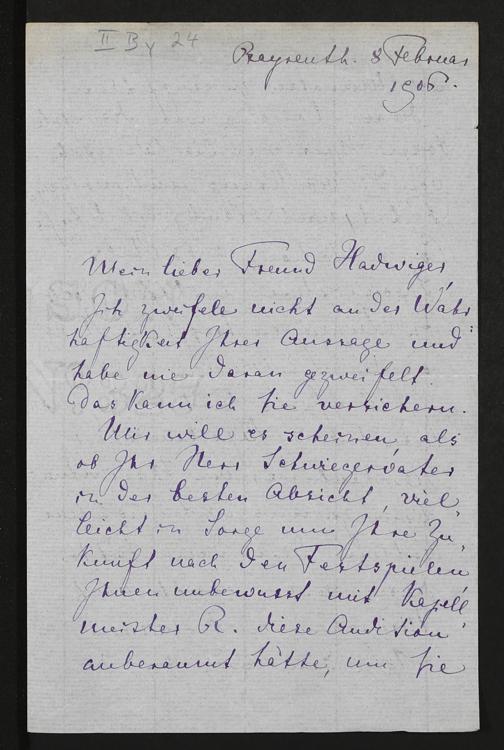 II By 24
Bayreuth. 8 Februar
1906.
Mein lieber Freund Hadwiger,
Ich zweifele nicht an der Wahr
haftigkeit Ihrer Aussage und
habe nie daran gezweifelt.
Das kann ich Sie versichern.
Mir will es scheinen, als
ob Ihr Herr Schwiegervater
in der besten Absicht, viel
leicht in Sorge um Ihre Zu
kunft nach den Festspielen
Ihnen unbewusst mit Kapell
meister R. diese Audition
anberaumt hätte, um Sie